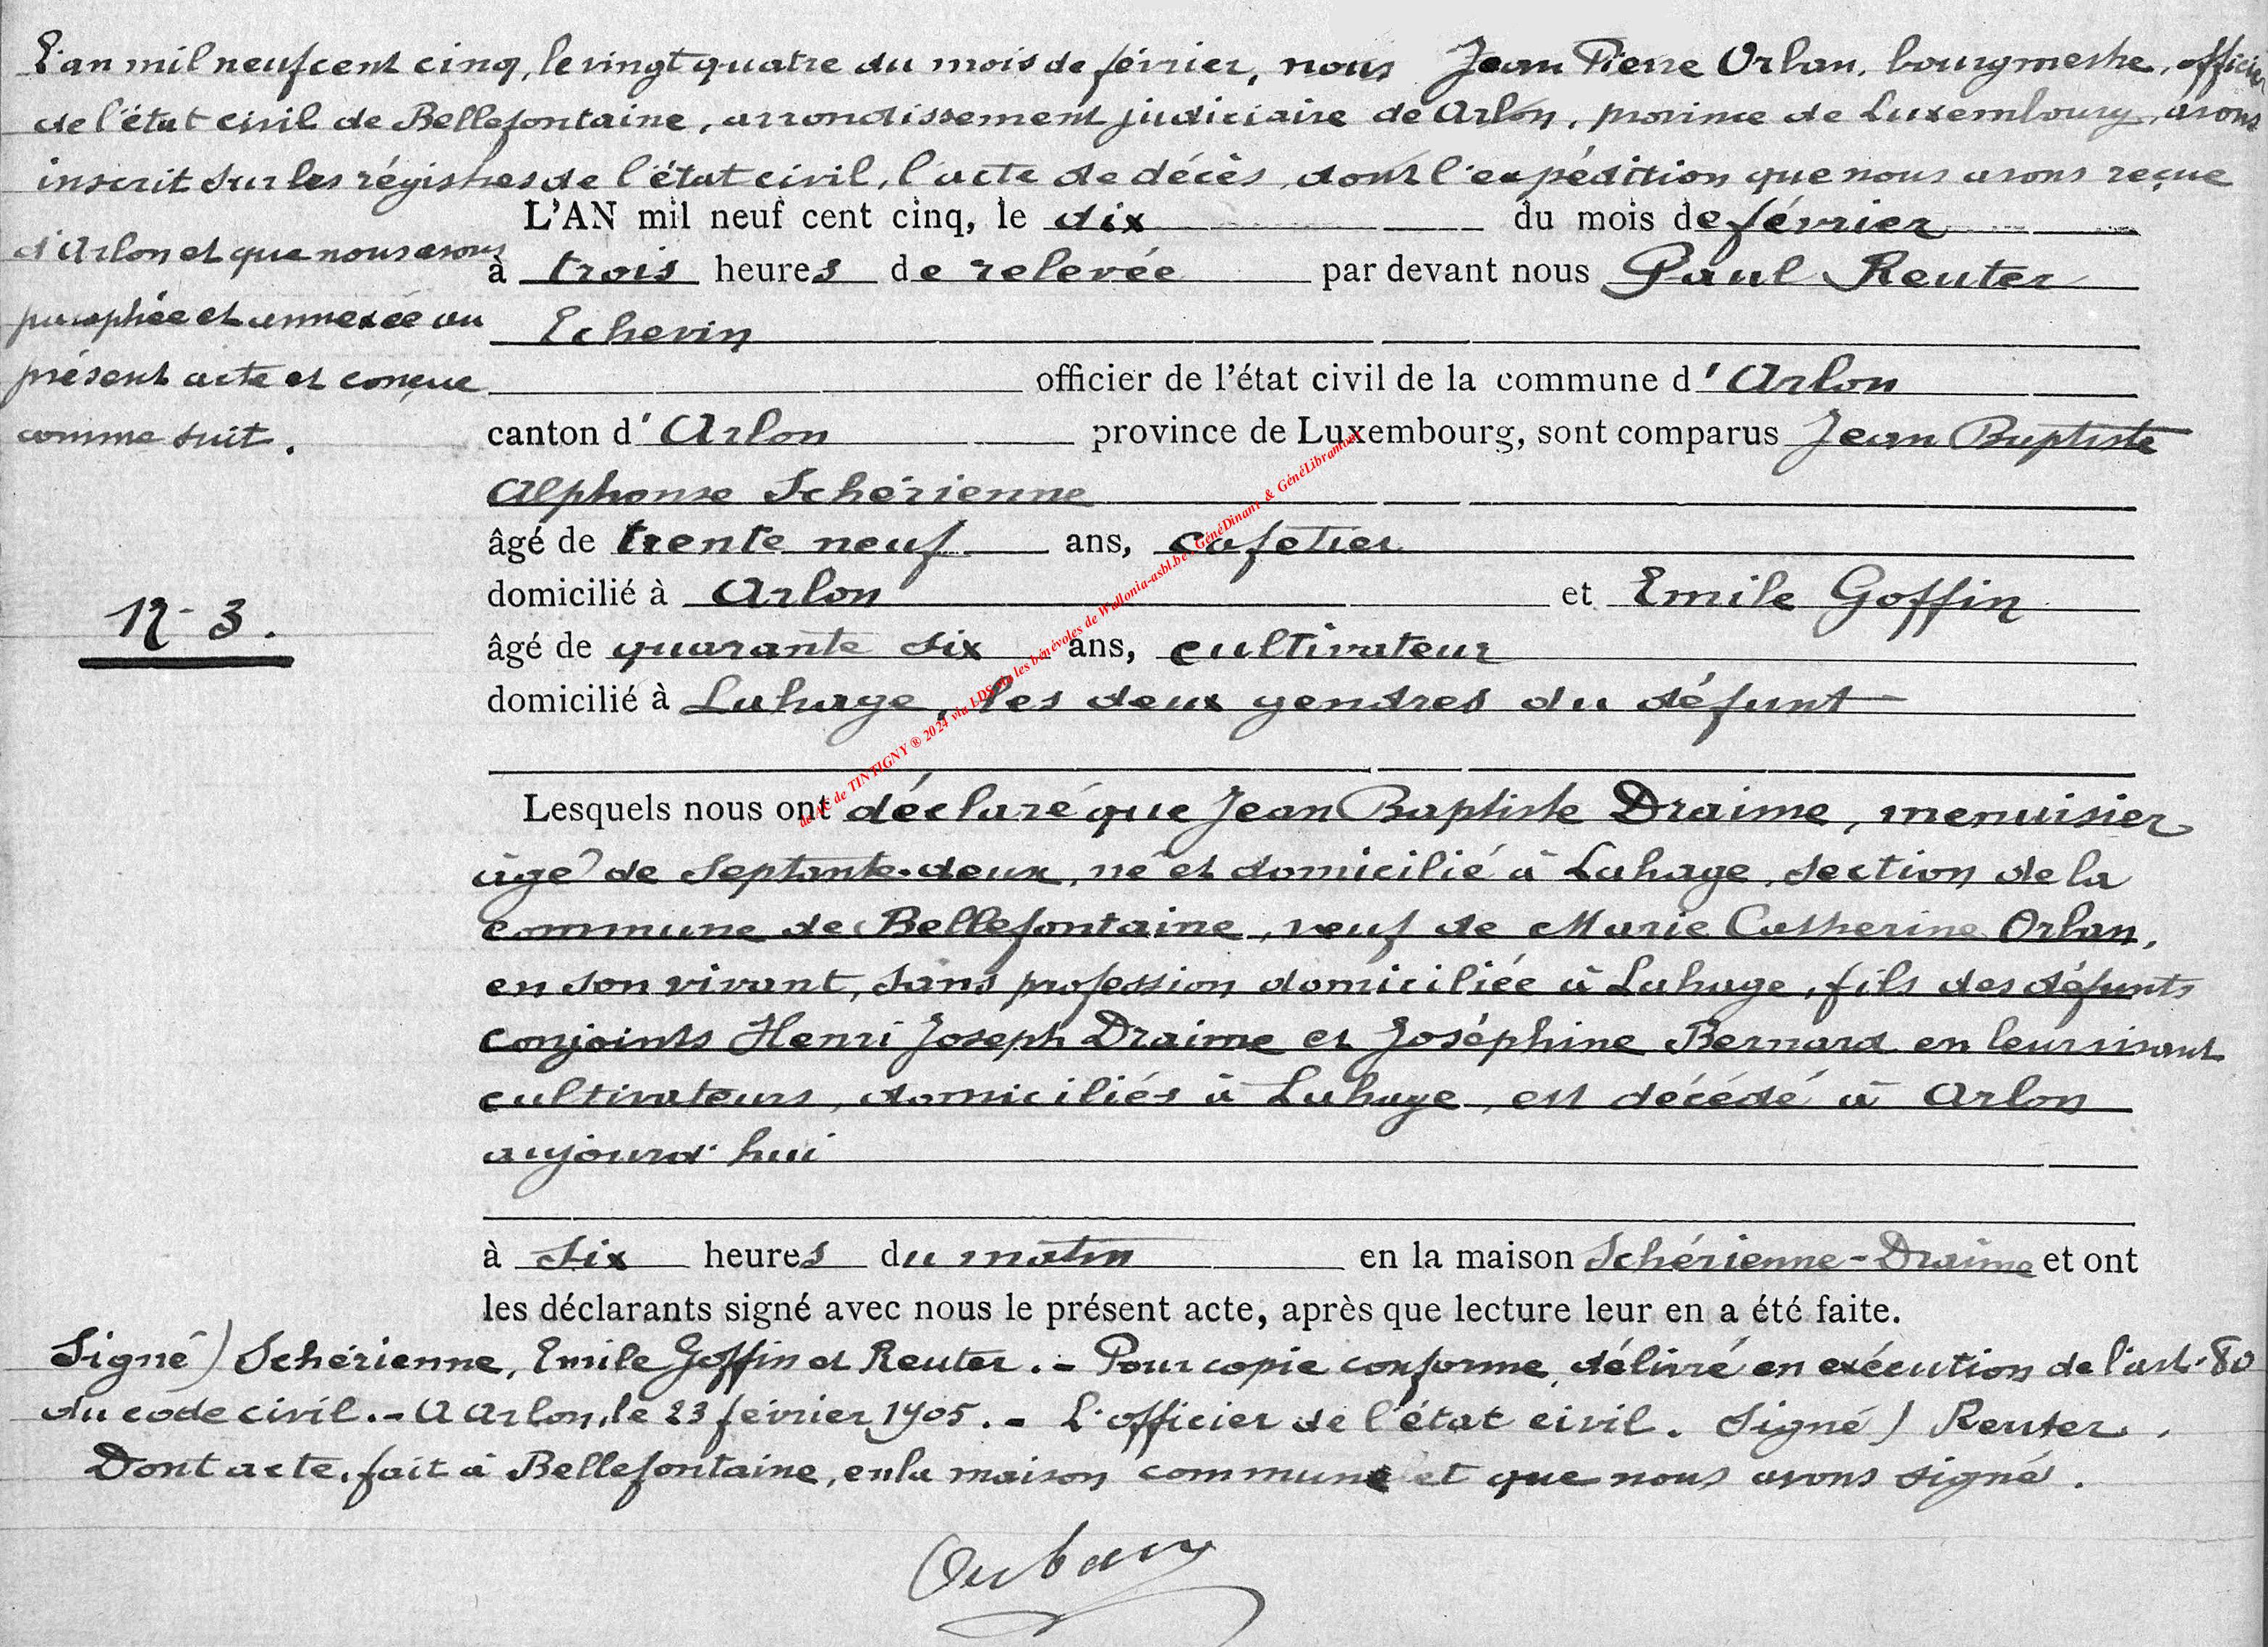 L'an mil neuf cent cinq, le vingt quatre du mois de février, nous Jean Pierre Orban, bourgmestre, officier
de l'état civil de Bellefontaine, arrondissement judiciaire de Arlon, province de Luxembourg, avons
inscrit sur les régistres de l'état civil, l'acte de décès, dont l'expédition que nous avons reçue
d'Arlon et que nous avons
paraphée et annexée au
présent acte et conçue
comme suit.
N° 3.
L'AN mil neuf cent cinq, le dix du mois de février
à trois heures de relevée par devant nous Paul Reuter
Echevin
officier de l'état civil de la commune d'Arlon
canton d'Arlon province de Luxembourg, sont comparus Jean Baptiste
Alphonse Schérienne
âgé de trente neuf ans, cafetier
domicilié à Arlon et Emile Goffin
âgé de quarante six ans, cultivateur
domicilié à Lahage, les deux gendres du défunt
Lesquels nous ont déclaré que Jean Baptiste Draime, menuisier
âgé de septante-deux, né et domicilié à Lahage, section de la
commune de Bellefontaine, veuf de Marie Catherine Orban,
en son vivant, sans profession domiciliée à Lahage, fils des défunts
conjoints Henri Joseph Draime et Joséphine Bernard en leur vivant
cultivateurs, domiciliés à Lahage, est décédé à Arlon
aujourd'hui
à six heures du matin en la maison Schérienne-Draime et ont
les déclarants signé avec nous le présent acte, après que lecture leur en a été faite.
Signé) Schérienne, Emile Goffin et Reuter.- Pour copie conforme, délivré en exécution de l'art. 80
du code civil.- A Arlon, le 23 février 1905.- L'officier de l'état civil. Signé) Reuter.
Dont acte, fait à Bellefontaine, en la maison commune et que nous avons signé.
Orban
de AC de TINTIGNY ® 2024 via LDS via les bénévoles de Wallonia-asbl.be, GénéDinant & GénéLibramont